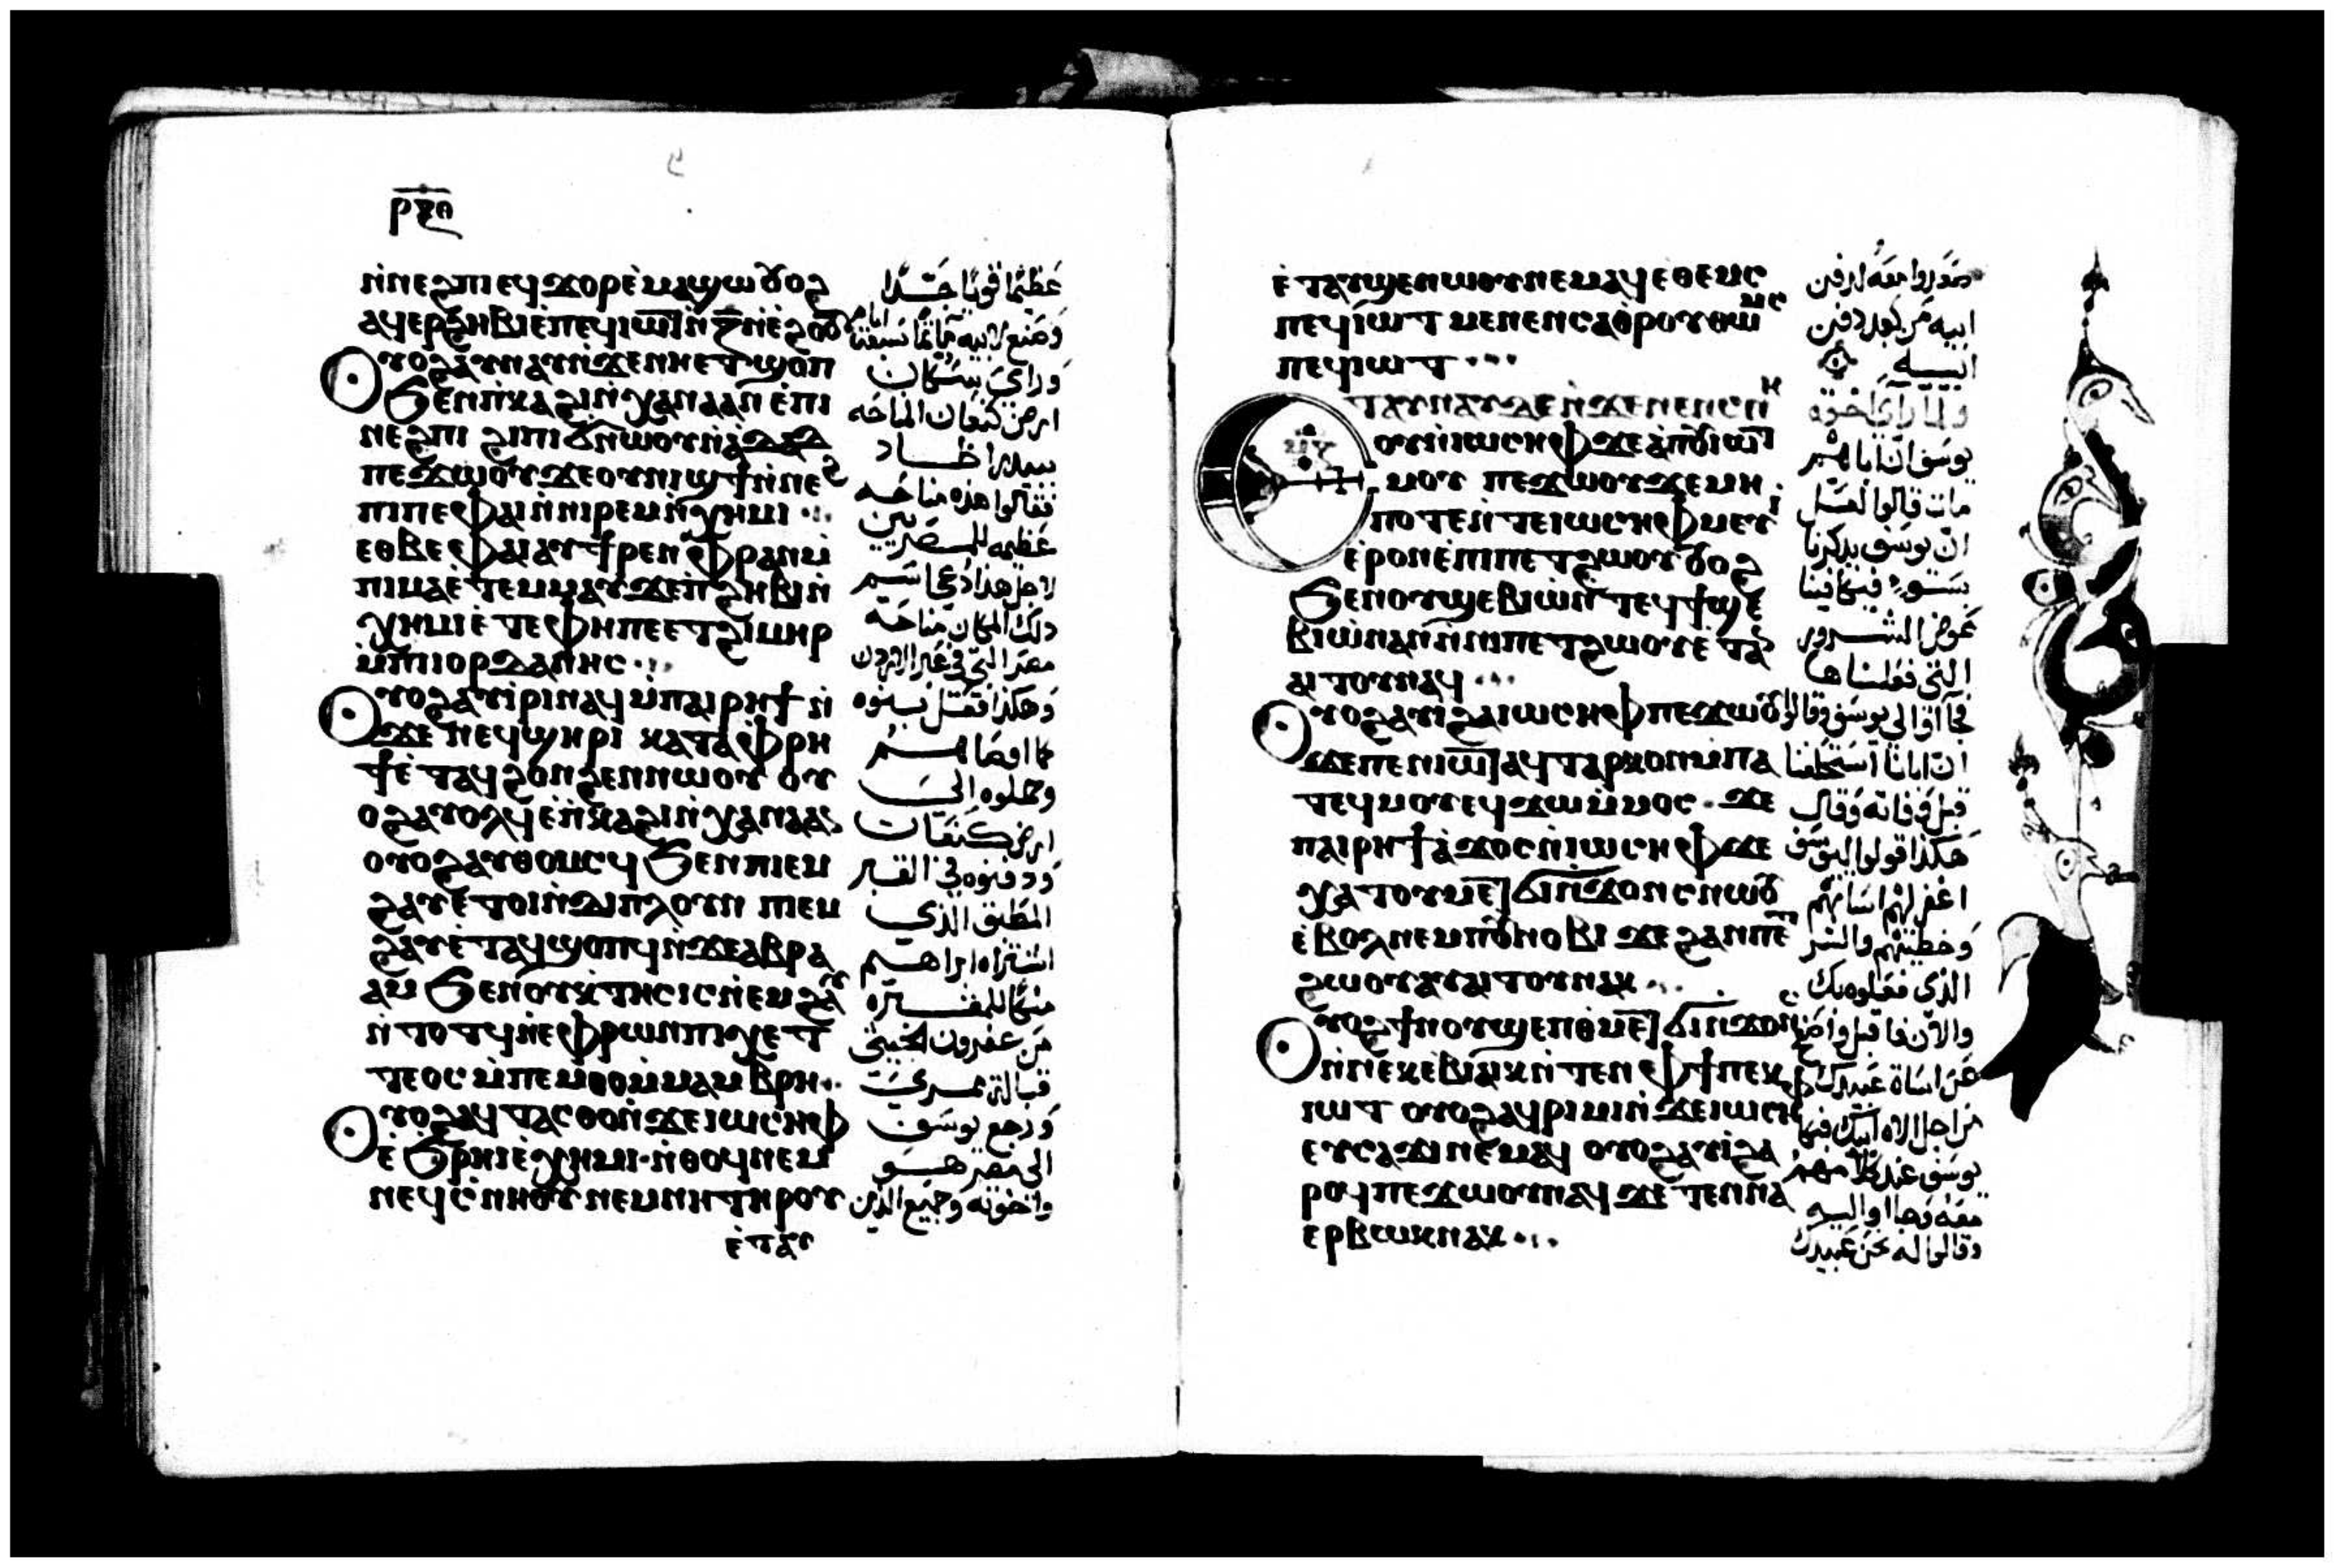 ⲣⲝⲑ
ⲛ̀ⲛⲉϩⲡⲓ ⲉϥϫⲟⲣ ⲉ̀ⲙⲁϣⲱ ⲟⲩⲟϩ
ⲁϥⲉⲣϩⲏⲃⲓ ⲉ̀ⲡⲉϥⲓⲱⲧ ⲛ̀ⲍ̄ ⲛ̀ⲉ̀ϩⲟⲟⲩ
ⲟⲩⲟϩ ⲁⲩⲛⲁⲩ ⲛ̀ϫⲉ ⲛⲏⲉⲧϣⲟⲡ
ϧⲉⲛ ⲡⲕⲁϩⲓ ⲛ̀ⲭⲁⲛⲁⲁⲛ ⲉ̀ⲡⲓ
ⲛⲉϩⲡⲓ ϩⲓ ⲡⲓϭⲛⲱⲟⲩ ⲛ̀ⲁ̀ⲇⲁⲇ
ⲡⲉϫⲱⲟⲩ ϫⲉ ⲟⲩⲛⲓϣϯ ⲛ̀ⲛⲉϩ
ⲡⲓ ⲡⲉ ⲫⲁⲓ ⲛ̀ⲛⲓⲣⲉⲙⲛ̀ⲭⲏⲙⲓ
ⲉⲑⲃⲉ ⲫⲁⲓ ⲁⲩϯⲣⲉⲛ ⲫⲣⲁⲛ ⲙ̀
ⲡⲓⲙⲁ ⲉ̀ⲧⲉⲙⲙⲁⲩ ϫⲉ ⲡ̀ϩⲏⲃⲓ ⲛ̀
ⲭⲏⲙⲓ ⲉ̀ⲧⲉ ⲫⲏ ⲡⲉ ⲉⲧϩⲓⲙⲏⲣ
ⲙ̀ⲡⲓⲟⲣⲇⲁⲛⲏⲥ
ⲟⲩⲟϩ ⲁⲩⲓ̀ⲣⲓ ⲛⲁϥ ⲙ̀ⲡⲁⲓⲣⲏϯ ⲛ̀
ϫⲉ ⲛⲉϥϣⲏⲣⲓ ⲕⲁⲧⲁ ⲫⲣⲏ
ϯ ⲉ̀ⲧⲁϥϩⲟⲛϩⲉⲛ ⲛⲱⲟⲩ ⲟⲩ
ⲟϩ ⲁⲩⲟⲗϥ ⲉ̀ⲡ̀ⲕⲁϩⲓ ⲛ̀ⲭⲁⲛⲁⲁⲛ
ⲟⲩⲟϩ ⲁⲩⲑⲟⲙⲥϥ ϧⲉⲛ ⲡⲓⲉⲙ
ϩⲁⲩ ⲉ̀ⲧⲟⲓ ⲛ̀ⲇⲓⲡⲗⲟⲩⲛ ⲡⲓⲉⲙ
ϩⲁⲩ ⲉ̀ⲧⲁϥϣⲟⲡϥ ⲛ̀ϫⲉ ⲁⲃⲣⲁ
ⲁⲙ ϧⲉⲛ ⲟⲩⲭ̀ⲧⲏⲥⲓⲥ ⲛ̀ⲉⲙϩⲁⲩ
ⲛ̀ⲧⲟⲧϥ ⲛ̀ⲉⲫⲣⲱⲛ ⲡⲓⲭⲉⲧ
ⲧⲉⲟⲥ ⲙ̀ⲡⲉⲙⲑⲟ ⲙ̀ⲙⲁⲙⲃⲣⲏ
ⲟⲩⲟϩ ⲁϥⲧⲁⲥⲑⲟ ⲛ̀ϫⲉ ⲓⲱⲥⲏⲫ
ⲉ̀ϧⲣⲏⲓ ⲉ̀ⲭⲏⲙⲓ ⲛ̀ⲑⲟϥ ⲛⲉⲙ
ⲛⲉϥⲥ̀ⲛⲏⲟⲩ ⲛⲉⲙ ⲛⲏ ⲧⲏⲣⲟⲩ
ⲉ̀ⲧⲁⲩ
عظيما قويا جدا
وصنع لابيه مناحا سبعة ايام
وراى سكان
ارض كنعان المناحه
فقالوا هذه مناحه
عظيمه للمصريين
لاجل هذا دعى اسم
ذلك المكان مناحة
مصر التى فى عبر الاردن
وهكذا فعل بنوه
كما اوصاهم
وحملوه الى
ارض كنعان
ودفنوه فى القبر
المطبق الذى
اشتراه ابراهيم
من عفرون الحيثى
قبالة ممرى
ورجع يوسف
الى مصر هو
واخوته وجميع الذين
ⲉ̀ⲧⲁⲩϣⲉⲛⲱⲟⲩ ⲛⲉⲙⲁϥ ⲉⲑⲉⲙⲥ
ⲡⲉϥⲓ̀ⲱⲧ ⲙⲉⲛⲉⲛⲥⲁ ⲑ̀ⲣⲟⲩⲑⲱⲙⲥ
ⲡⲉϥⲓⲱⲧ
ⲉⲧⲁⲩⲛⲁⲩ ⲇⲉ ⲛ̀ϫⲉ ⲛⲉⲛⲥⲛⲏ
ⲟⲩ ⲛ̀ⲓⲱⲥⲏⲫ ϫⲉ ⲁ̀ ⲡⲟⲩⲓⲱⲧ
ⲙⲟⲩ ⲡⲉϫⲱⲟⲩ ϫⲉ ⲙⲏ
ⲡⲟⲧⲉ ⲛ̀ⲧⲉ ⲓⲱⲥⲏⲫ ⲙⲉⲩⲓ
ⲉ̀ⲣⲟⲛ ⲉ̀ⲡⲓⲡⲉⲧϩⲱⲟⲩ ⲟⲩⲟϩ
ϧⲉⲛ ⲟⲩϣⲉⲃⲓⲱ ⲛ̀ⲧⲉϥϯϣⲉ
ⲃⲓⲱ ⲛⲁⲛ ⲛ̀ⲛⲓⲡⲉⲧϩⲱⲟⲩ ⲉ̀ⲧⲁⲛ
ⲁⲓⲧⲟⲩ ⲛⲁϥ
ⲟⲩⲟϩ ⲁⲩⲓ̀ ϩⲁ ⲓⲱⲥⲏⲫ ⲡⲉϫⲱⲟⲩ
ϫⲉ ⲡⲉⲛⲓⲱⲧ ⲁϥⲧⲁⲣⲕⲟⲛ ⲙ̀ⲡⲁ
ⲧⲉϥⲙⲟⲩ ⲉϥϫⲱ ⲙ̀ⲙⲟⲥ ϫⲉ
ⲡⲁⲓⲣⲏϯ ⲁ̀ϫⲟⲥ ⲛ̀ⲓⲱⲥⲏⲫ ϫⲉ
ⲭⲁ ⲧⲟⲩⲙⲉⲧϭⲓⲛ̀ϫⲟⲛⲥ ⲛⲱⲟⲩ
ⲉ̀ⲃⲟⲗ ⲛⲉⲙ ⲡⲟⲩⲛⲟⲃⲓ ϫⲉ ϩⲁⲛⲡⲉⲧ
ϩⲱⲟⲩ ⲁⲩⲁⲓⲧⲟⲩ ⲛⲁⲕ
ⲟⲩⲟϩ ϯⲛⲟⲩ ϣⲉⲡ ⲑⲙⲉⲧϭⲓⲛ̀ϫⲟⲛⲥ
ⲛ̀ⲛⲉⲕⲉⲃⲓⲁⲓⲕ ⲛ̀ⲧⲉⲛ ⲫϯ ⲙⲡⲉⲕ
ⲓⲱⲧ ⲟⲩⲟϩ ⲁϥⲣⲓⲙⲓ ⲛ̀ϫⲉ ⲓⲱⲥⲏⲫ
ⲉⲩⲥⲁϫⲓ ⲛⲉⲙⲁϥ ⲟⲩⲟϩ ⲁⲩⲓ̀ ϩⲁ
ⲣⲟϥ ⲡⲉϫⲱⲟⲩ ⲛⲁϥ ϫⲉ ⲧⲉⲛⲛⲁ
ⲉⲣⲃⲱⲕ ⲛⲁⲕ
ابيه من بعد دفن
ابيه
ولما راى اخوة
يوسف ان اباهم
مات قالوا لعل
ان يوسف يذكرنا
عوض الشرور
التى فعلناها
ان ابانا استحلفنا
قبل وفاته وقال
هكذا قولوا ليوسف
اغفر لهم اساتهم
وخطيتهم والشر
الذى فعلوه بك
يوسف عند كلامهم
معه وجاوا اليه
وقالوا له نحن عبيدك